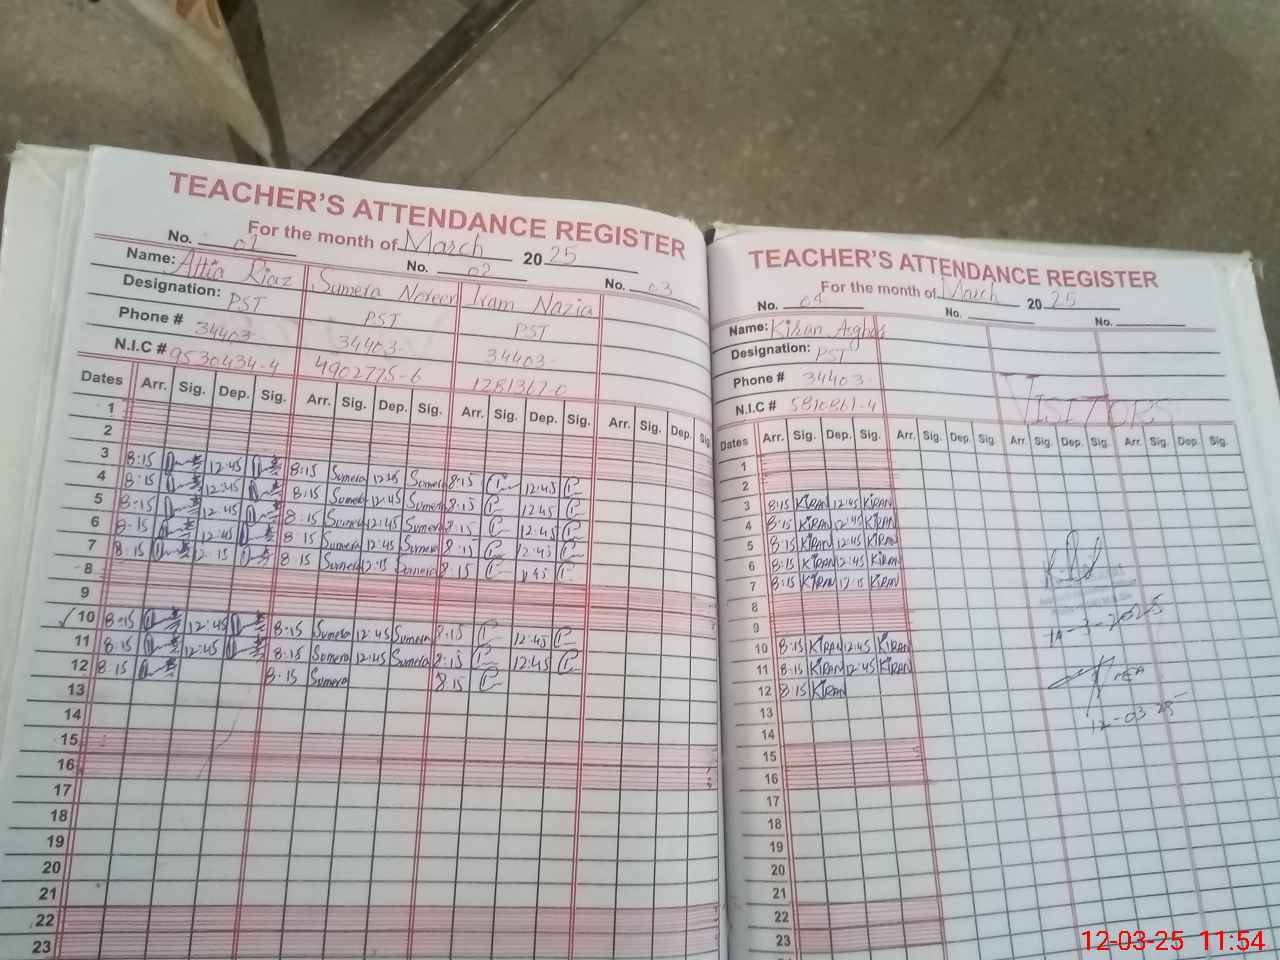 TEACHER'S ATTENDANCE REGISTER
For the month of March 2025
No. 01 No. 02 No. 03
Name: Attia Riaz Sumera Noreen Iram Nazia
Designation: PST PST PST
Phone # 34403- 34403- 34403-
N.I.C # 9530434-4 4902775-6 1281367-0
Dates Arr. Sig. Dep. Sig. Arr. Sig. Dep. Sig. Arr. Sig. Dep. Sig. Arr. Sig. Dep. Sig.
1
2
3 8:15 12:45 8:15 Sumera 12:45 Sumera 8:15 12:45
4 8:15 12:45 8:15 Sumera 12:45 Sumera 8:15 12:45
5 8:15 12:45 8:15 Sumera 12:45 Sumera 8:15 12:45
6 8:15 12:45 8:15 Sumera 12:45 Sumera 8:15 12:45
7 8:15 12:15 8:15 Sumera 12:15 Sumera 8:15
8
9
10 8:15 12:45 8:15 Sumera 12:45 Sumera 8:15 12:45
11 8:15 12:45 8:15 Sumera 12:45 Sumera 8:15 12:45
12 8:15 8:15 Sumera 8:15
13
14
15
16
17
18
19
20
21
22
23
TEACHER'S ATTENDANCE REGISTER
For the month of March 2025
No. 04 No. No.
Name: Kiran Asghar
Designation: PST
Phone # 34403-
N.I.C # 5810861-4 VISITORS
Dates Arr. Sig. Dep. Sig. Arr. Sig. Dep. Sig. Arr. Sig. Dep. Sig. Arr. Sig. Dep. Sig.
1
2
3 8:15 KIRAN 12:45 KIRAN
4 8:15 KIRAN 12:45 KIRAN
5 8:15 KIRAN 12:45 KIRAN
6 8:15 KIRAN 12:45 KIRAN
7 8:15 KIRAN 12:15 KIRAN
8
9
10 8:15 KIRAN 12:45 KIRAN
11 8:15 KIRAN 12:45 KIRAN
12 8:15 KIRAN
13
14
15
16
17
18
19
20
21
22
23
12-03-25
12-03-25 11:54